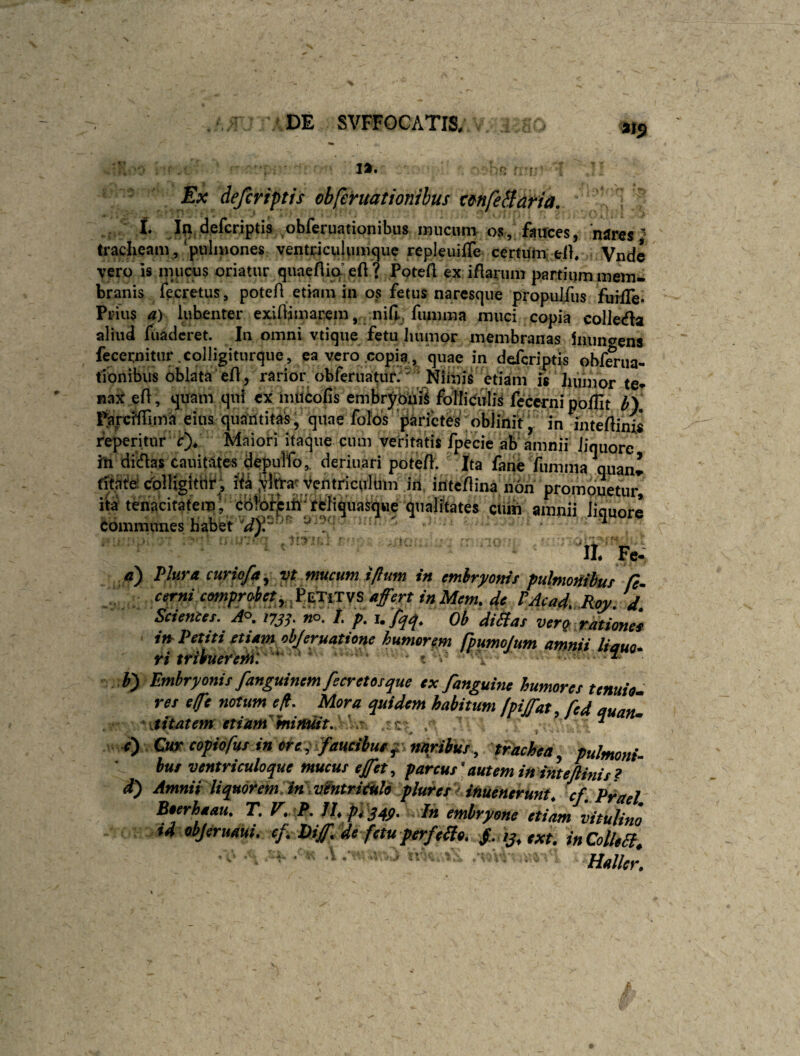 DE SVFFOCATIS.
219
12.
Ex descriptis obseruationibus consectaria.
I. In descriptis obseruationibus mucum os, fauces, nares,
tracheam, pulmones ventriculumque repleuisse certum est. Vnde
vero is mucus oriatur quaestio est? Potest ex istarum partium mem-
branis secretus, potest etiam in os fetus naresque propulsus fuisse.
Prius a) lubenter existimarem, nisi summa muci copia collecta
aliud suaderet. In omni vtique fetu humor membranas inungens
secernitur colligiturque, ea vero copia, quae in descriptis obserua-
tionibus oblata est, rarior obseruatur. Nimis etiam is humor te-
nax est, quam qui ex mucosis embryonis folliculis secerni possit b).
Parcissima eius quantitas, quae solos parietes oblinit, in intestinis
reperitur c). Maiori itaque cum veritatis specie ab amnii liquore
in dictas cauitates depulso, deriuari potest. Ita sane summa quan-
titate colligitur, ita vltra ventriculum in intestina non promouetur,
ita tenacitatem, colorem reliquasque qualitates cum amnii liquore
communes habet d).
II. Fe-
a) Plura curiosa, vt mucum istum in embryonis pulmonibus se-
cerni comprobet, PETITVS affert in Mem. de l'Acad. Roy. d.
Sciences. A°. 1733. n°. I. p. 1. sqq. Ob dictas vero rationes
in Petiti etiam obseruatione humorem spumosum amnii liquo-
ri tribuerem.
b) Embryonis sanguinem secretosque ex sanguine humores tenuio-
res esse notum est. Mora quidem habitum spissat, sed quan-
titatem etiam minuit.
c) Cur copiosus in ore, faucibus, naribus, trachea, pulmoni-
bus ventriculoque mucus esset, parcus autem in intestinis?
d) Amnii liquorem in ventriculo plures inuenerunt. cf. Prael.
Boerhaau. T. V. P. II. p. 349. In embryone etiam vitulino
id obseruaui. cf. Diss. de fetu perfecto. §. 13. ext. in Collect.
Haller.